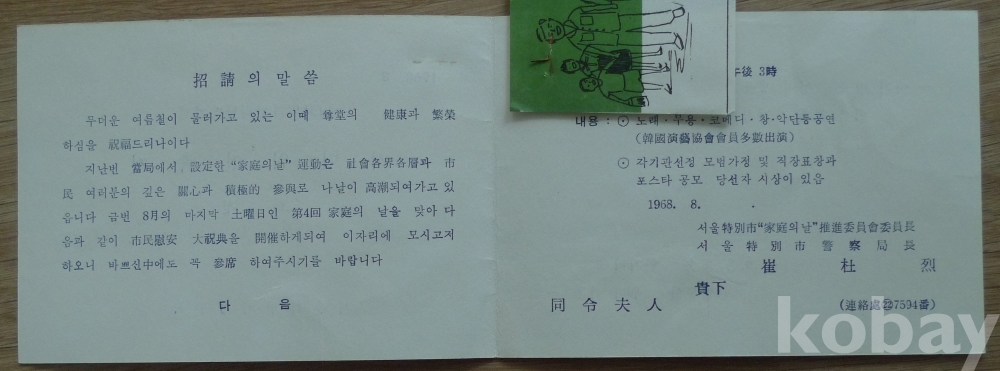 招請의 말씀
무더운 여름철이 물러가고 있는 이때 尊堂의 健康과 繁榮
하심을 祝福드리나이다
지난번 當局에서 設定한 "家庭의날" 運動은 社會各界各層과 市
民 여러분의 깊은 關心과 積極的 參與로 나날이 高潮되여가고 있
읍니다 금번 8月의 마지막 土曜日인 第4回 家庭의 날을 맞아 다
음과 같이 市民慰安 大祝典을 開催하게되여 이자리에 모시고저
하오니 바쁘신中에도 꼭 參席 하여주시기를 바랍니다
다 음
午後 3時
내용 : ⊙ 노래·무용·코메디·창·악단등공연
(韓國演藝協會會員多數出演)
⊙ 각기관선정 모범가정 및 직장표창과
포스타 공모 당선자 시상이 있음
1968. 8. .
서울特別市"家庭의날"推進委員會委員長
서울特別市警察局長
崔杜烈
貴下
同令夫人
(連絡處㉒7594番)
kobay